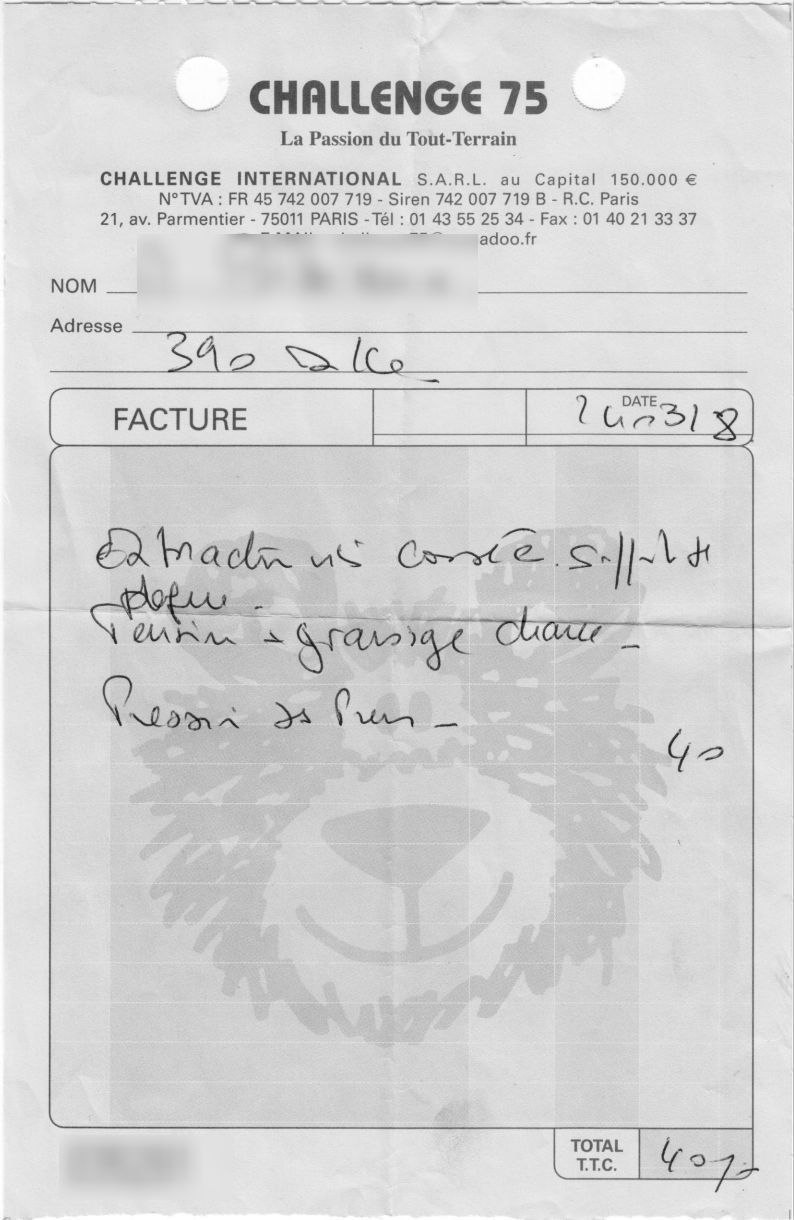 CHALLENGE 75
La Passion du Tout-Terrain
CHALLENGE INTERNATIONAL S.A.R.L. au Capital 150.000 €
N° TVA : FR 45 742 007 719 - Siren 742 007 719 B - R.C. Paris
21, av. Parmentier - 75011 PARIS - Tél : 01 43 55 25 34 - Fax : 01 40 21 33 37
adoo.fr
NOM
Adresse
390 Duke
FACTURE
DATE
Extraction vis cassée. support de
plaque -
Tension + graissage chaine -
Pression des Pneus -
40
TOTAL
T.T.C.
40,-